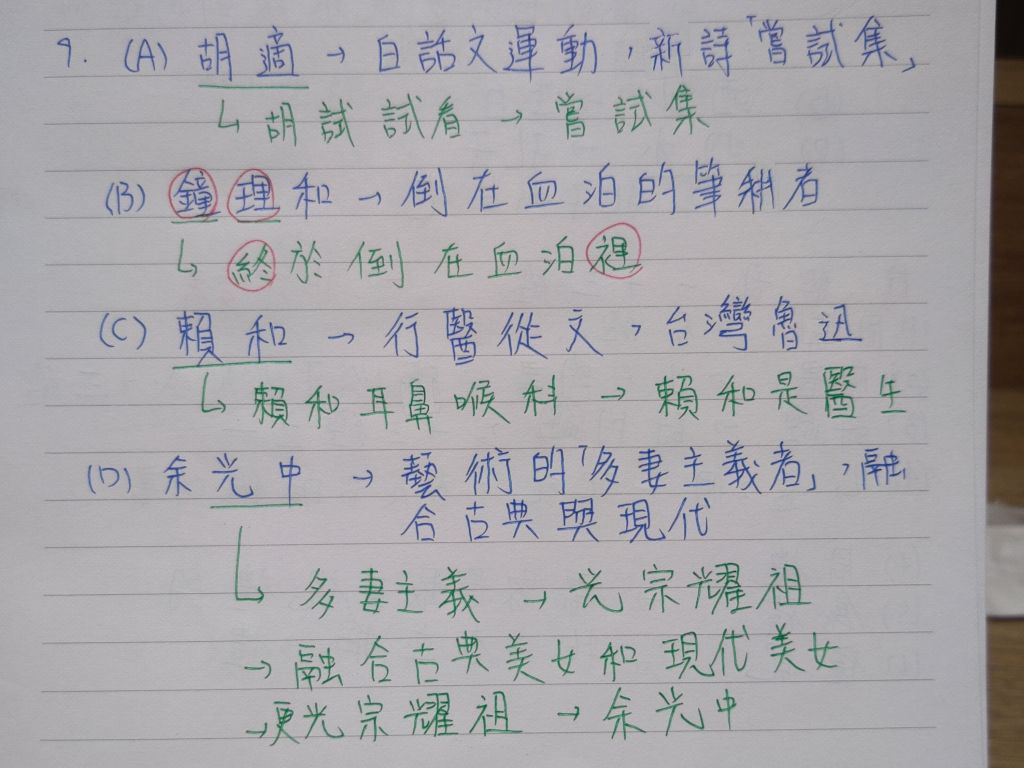 9. (A) 胡適 → 白話文運動，新詩「嘗試集」
↳ 胡試試看 → 嘗試集
(B) 鐘理和 → 倒在血泊的筆耕者
↳ 終於倒在血泊裡
(C) 賴和 → 行醫從文，台灣魯迅
↳ 賴和耳鼻喉科 → 賴和是醫生
(D) 余光中 → 藝術的「多妻主義者」，融
合古典與現代
↳ 多妻主義 → 光宗耀祖
→ 融合古典美女和現代美女
→更光宗耀祖 → 余光中